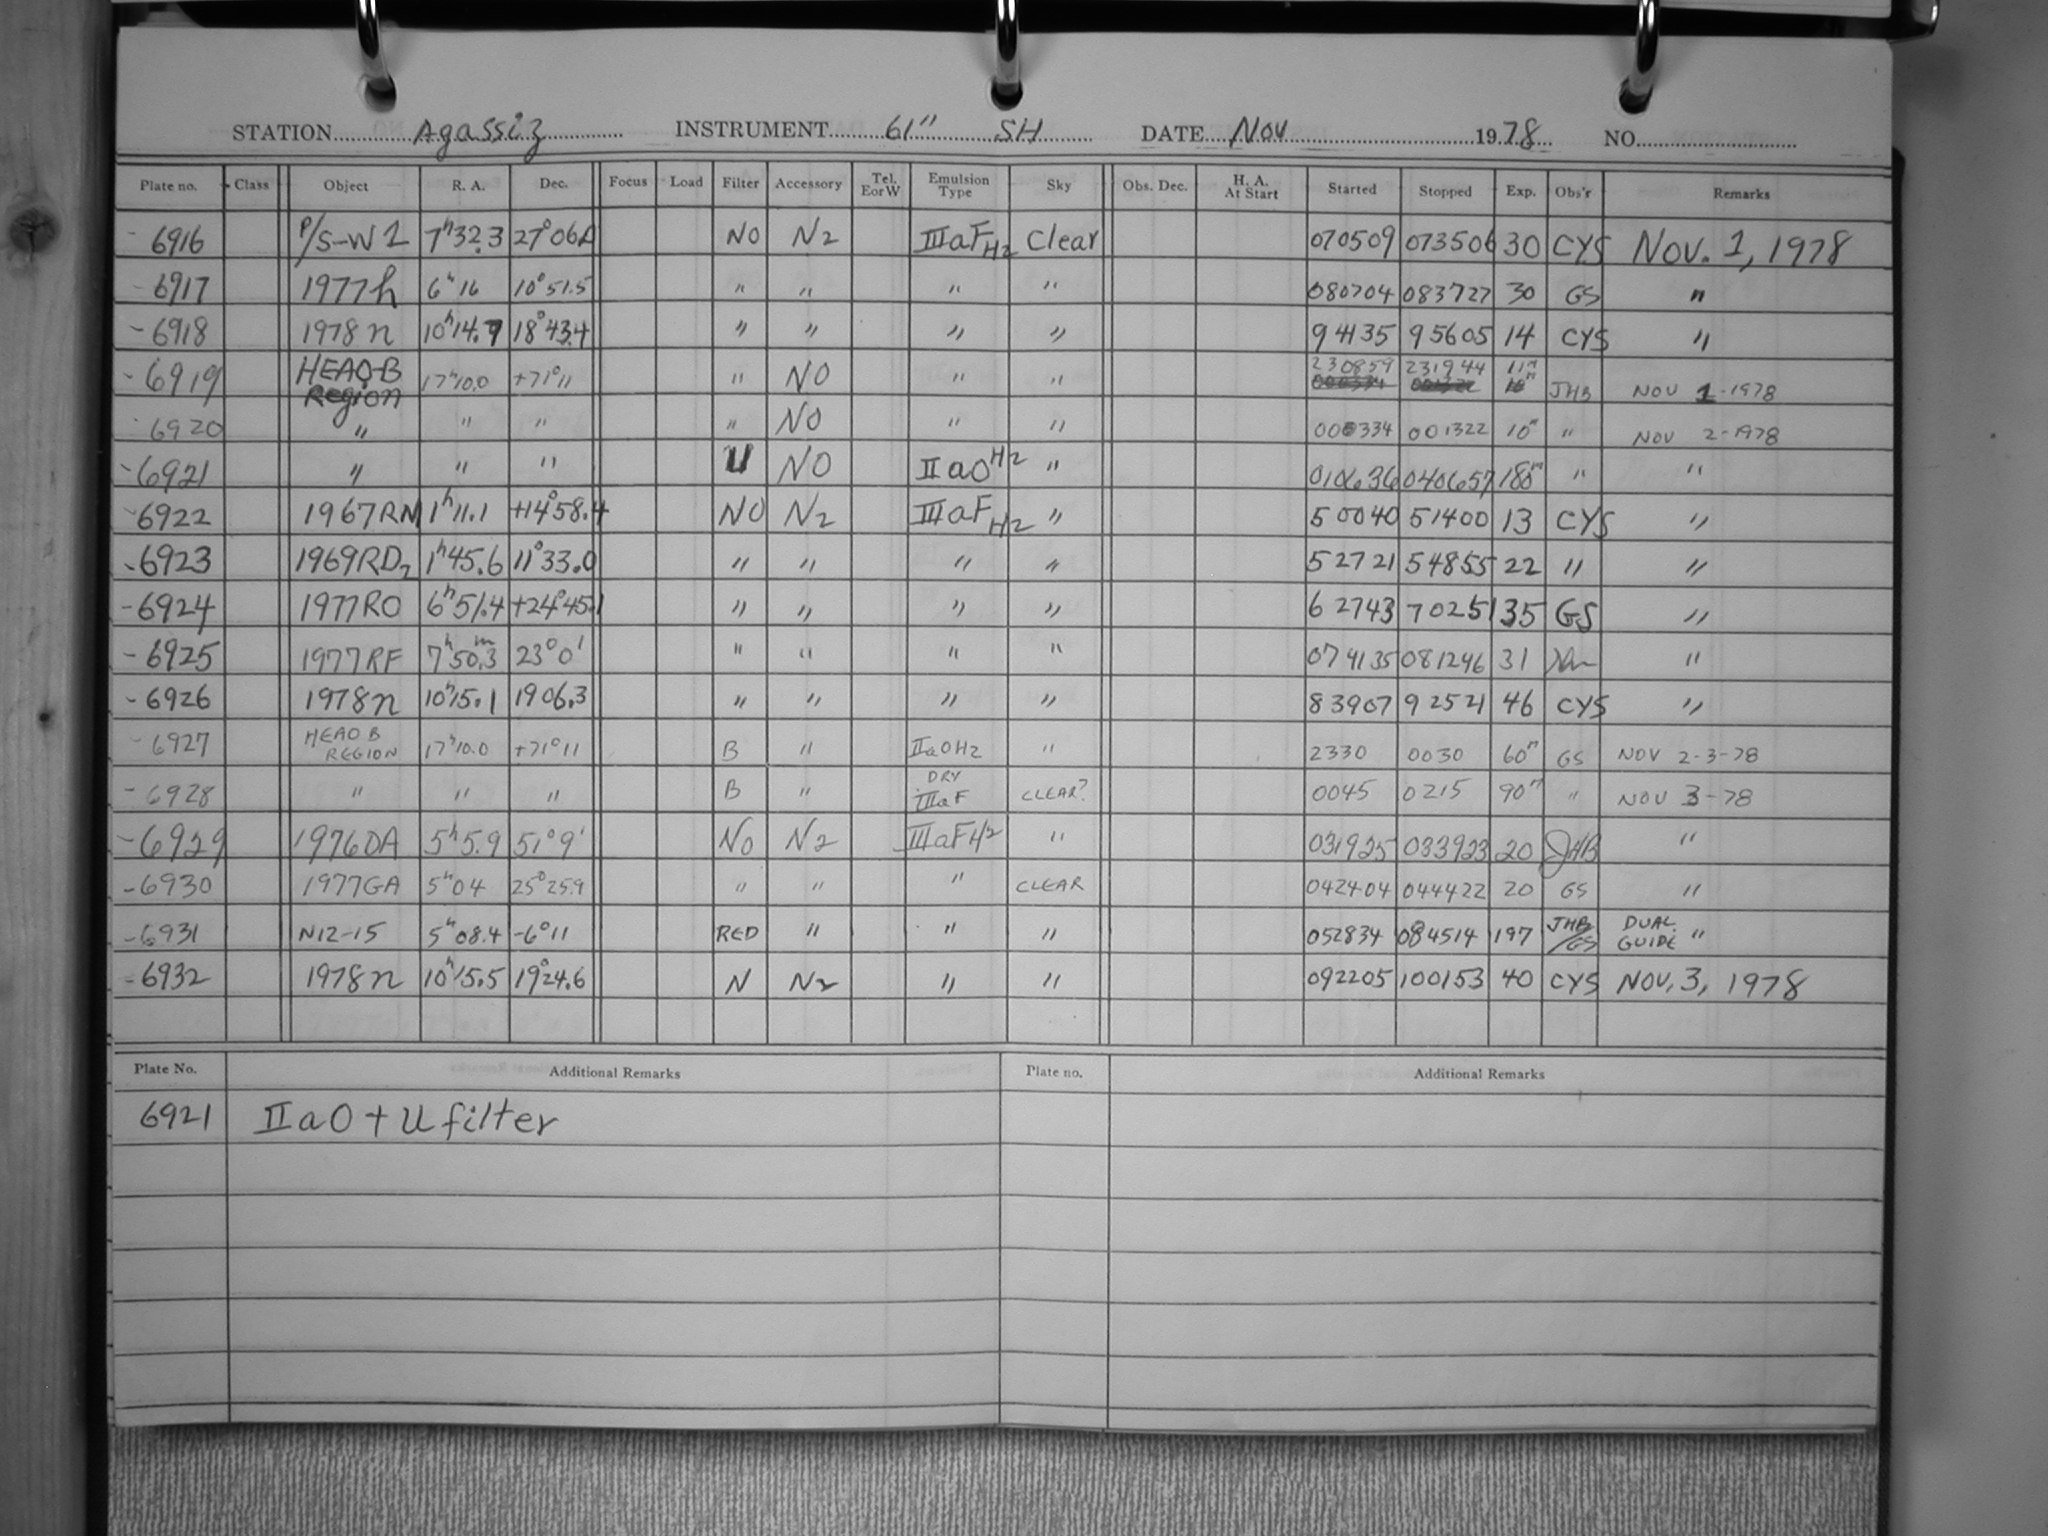 STATION Agassiz INSTRUMENT 61" SH DATE Nov 1978 NO.
Plate no. Class Object R. A. Dec. Focus Load Filter Accessory Tel. E or W Emulsion Type Sky Obs. Dec. H. A. At Start Started Stopped Exp. Obs'r Remarks
- 6916 P/S-W 1 7h32.3 27°06 NO N2 IIIaF H2 Clear 070509 073506 30 CYS Nov. 1, 1978
- 6917 1977h 6h16 10°51.5 " " " " 080704 083727 30 GS "
- 6918 1978n 10h14.7 18°43.4 " " " " 94135 95605 14 CYS "
- 6919 HEAO-B Region 17h10.0 +71°11 " NO " " 230859 231944 11m JHB NOV 1-1978
- 6920 " " " " NO " " 000334 001322 10m " NOV 2-1978
- 6921 " " " U NO IIaO H2 " 010636 040657 180m " "
- 6922 1967RM 1h11.1 +14°58.4 NO N2 IIIaF H2 " 50040 51400 13 CYS "
- 6923 1969RD2 1h45.6 11°33.0 " " " " 52721 54855 22 " "
- 6924 1977RO 6h51.4 +24°45.1 " " " " 62743 70251 35 GS "
- 6925 1977RF 7h50.3m 23°0' " " " " 074135 081246 31 "
- 6926 1978n 10h15.1 1906.3 " " " " 83907 92521 46 CYS "
- 6927 HEAO B REGION 17h10.0 +71°11 B " IIaOH2 " 2330 0030 60m GS NOV 2-3-78
- 6928 " " " B " DRY IIIaF CLEAR? 0045 0215 90m " NOV 3-78
- 6929 1976DA 5h5.9 51°9' No N2 IIIaFH2 " 031925 033923 20 JHB "
- 6930 1977GA 5h04 25°25.9 " " " CLEAR 042404 044422 20 GS "
- 6931 N12-15 5h08.4 -6°11 RED " " " 052834 084514 197 JHB/GS DUAL GUIDE "
- 6932 1978n 10h15.5 19°24.6 N N2 " " 092205 100153 40 CYS NOV, 3, 1978
Plate No. Additional Remarks Plate no. Additional Remarks
6921 IIaO + U filter